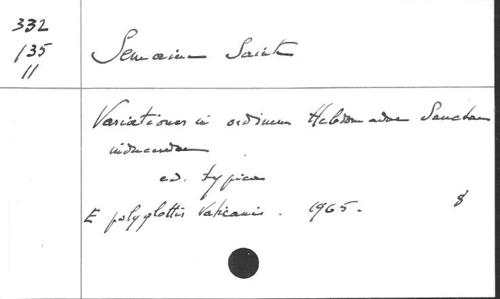 332
135
11
Semaine Sainte
Variationes in ordinem Hebdomadae Sanctae
inducendae
ed. typica
E polyglottis Vaticanis. 1965. 8